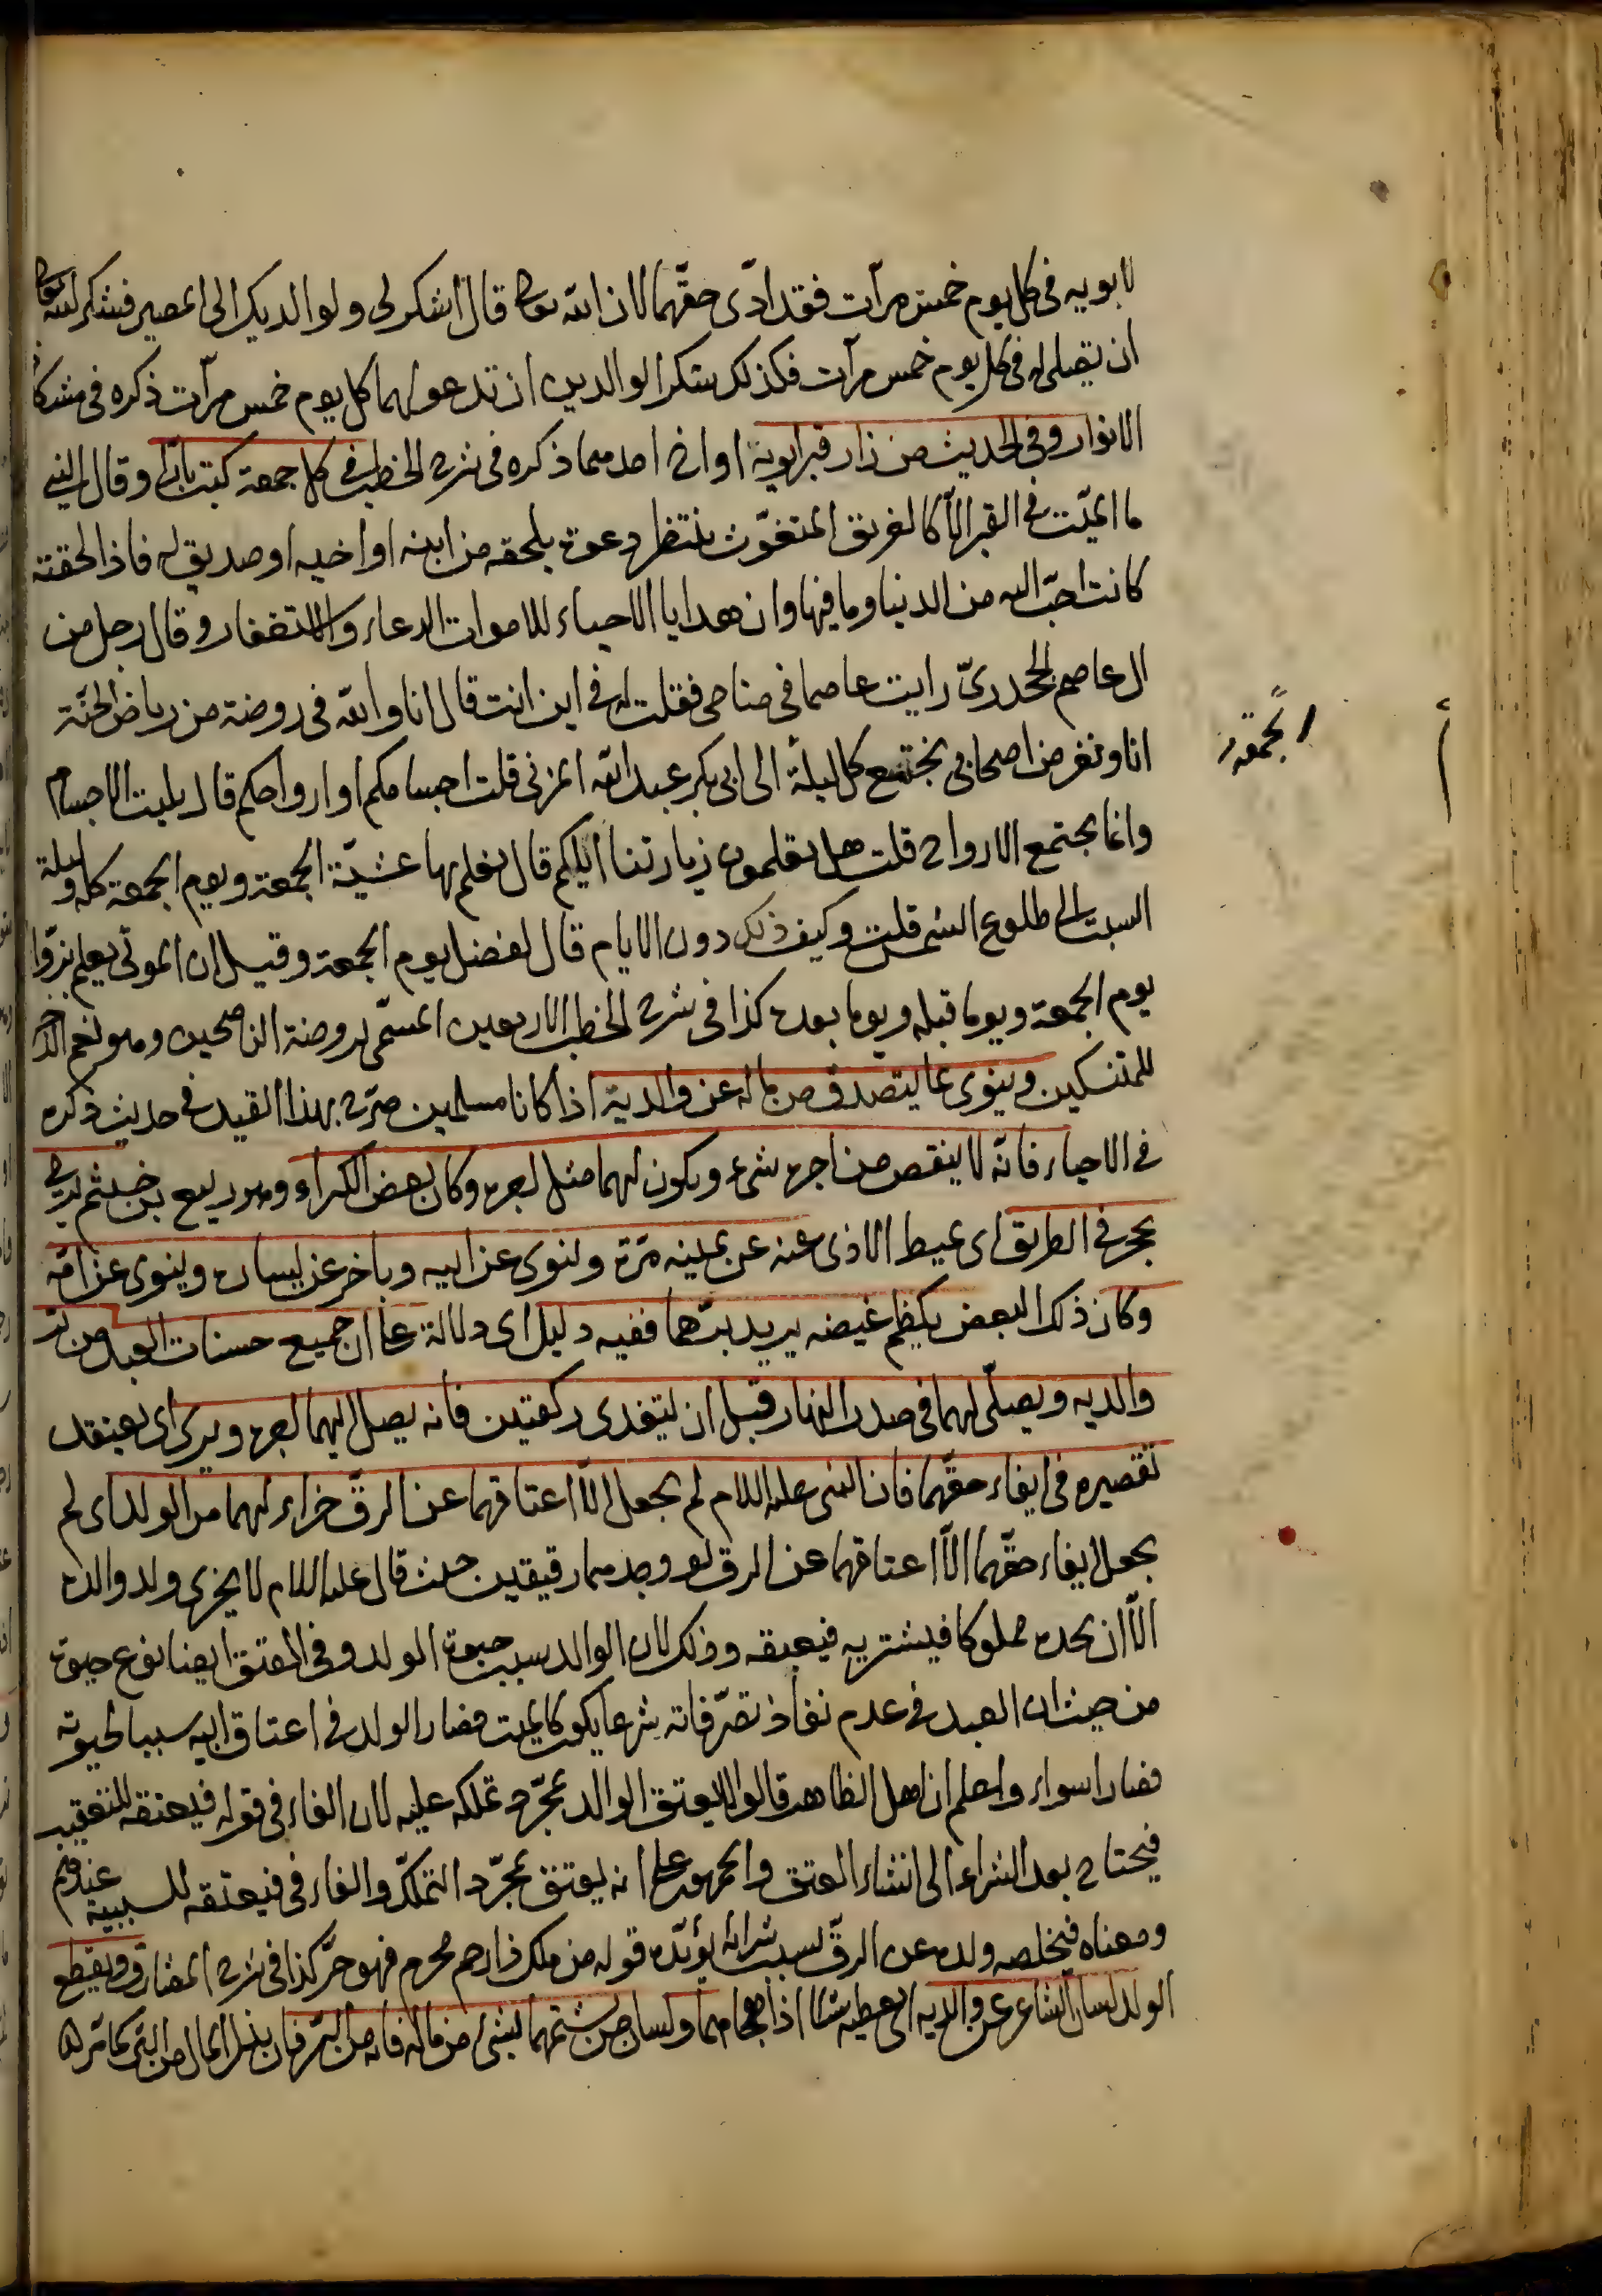 لابويه فى كل يوم خمس مرآت فقد ادّى حقّهما لان الله تعا قال اشكر لى ولوالديك الى المصير فشكر الله تعا
ان تصلى له فى كل يوم خمس مرآت فكذلك شكر الوالدين ان تدعو لهما كل يوم خمس مرآت ذكره فى مشكاة
الانوار وفى الحديث من زار قبر ابويه او احدهما ذكره فى شرح الخطب فى كل جمعة كتب بارّا وقال النبى
ما الميّت فى القبر الاّ كالغريق المتغوّث ينتظر دعوة يلحقه من ابنه او اخيه او صديق له فاذا لحقته
كانت احبّ اليه من الدنيا وما فيها وان هدايا الاحياء للاموات الدعاء والاستغفار وقال رجل من
ال عاصم الجحدرىّ رايت عاصما فى منامى فقلت له فى اين انت قال انا والله فى روضة من رياض الجنّة
انا ونفر من اصحابى نجتمع كل ليلة الى ابى بكر عبد الله المزنى قلت اجسامكم او ارواحكم قال بليت الاجسام
وانما يجتمع الارواح قلت هل تعلمون زيارتنا اليكم قال نعلم بها عشيّة الجمعة ويوم الجمعة كله وليلة
السبت الى طلوع الشمس قلت وكيف ذلك دون الايام قال لفضل يوم الجمعة وقيل ان الموتى يعلم بزوّا
يوم الجمعة ويوما قبله ويوما بعده كذا فى شرح الخطب الاربعين المسمّى بروضة الناصحين وهو نعم الذخر
للمتنسكين وينوى بما يتصدق من ماله عن والديه اذا كانا مسلمين صرّح بهذا القيد فى حديث ذكره
فى الاحياء فانّه لا ينقص من اجره شئ ويكون لهما مثل اجره وكان بعض الكبراء وهو ربيع بن خيثم يرمى
بحجر فى الطريق اى يميط الاذى عنه عن يمينه مرّة وينوى عن ابيه وباخر عن يساره وينوى عن امّه
وكان ذلك البعض يكظم غيضه يريد برّهما ففيه دليل اى دلالة على ان جميع حسنات العبد من بر
والديه ويصلّى لهما فى صدر النهار قبل ان يتغدى ركعتين فانه يصل اليهما اجره ويرى اى يعتقد
تقصيره فى ايفاء حقّهما فان النبى عليه السلام لم يجعل الاّ اعتاقهما عن الرقّ جزاء لهما من الولد اى لم
يجعل ايفاء حقّهما الاّ اعتاقهما عن الرق لو وجدهما رقيقين حيث قال عليه السلام لا يجزى ولد والده
الاّ ان يجده مملوكا فيشتريه فيعتقه وذلك لان الوالد سبب حيوة الولد وفى العتق ايضا نوع حيوة
من حيث ان العبد فى عدم نفاذ تصرّفاته شرعا يكون كالميت فصار الولد فى اعتاق ابيه سببا لحيوته
فصارا سواء واعلم ان اهل الظاهر قالوا لا يعتق الوالد بمجرّد تملكه عليه لان الفاء فى قوله فيعتقه للتعقيب
فيحتاج بعد الشراء الى انشاء العتق والجمهور على انه يعتق بمجرّد التملّك والفاء فى فيعتقه للسببية عندهم
ومعناه فيخلصه ولده عن الرقّ بسبب شرائه يؤيّده قوله من ملك ذا رحم محرم فهو حرّ كذا فى شرح المشارق ويقطع
الولد لسان الشاعر عن والديه اى يعطيه شيئا اذا هجاهما ولسان من يشتمهما بشئ من ماله فانه من البرّ فان بذل المال من البرّ كما ترى
الجمعة